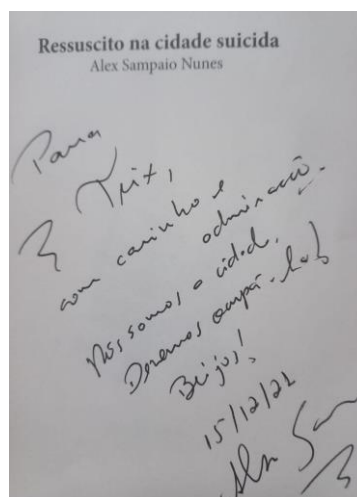 Ressuscito na cidade suicida
Alex Sampaio Nunes
Para
Trix,
com carinho e
admiração.
Nós somos a cidade.
Devemos ocupá-la!
Beijos!
15/12/21
Alex Sam